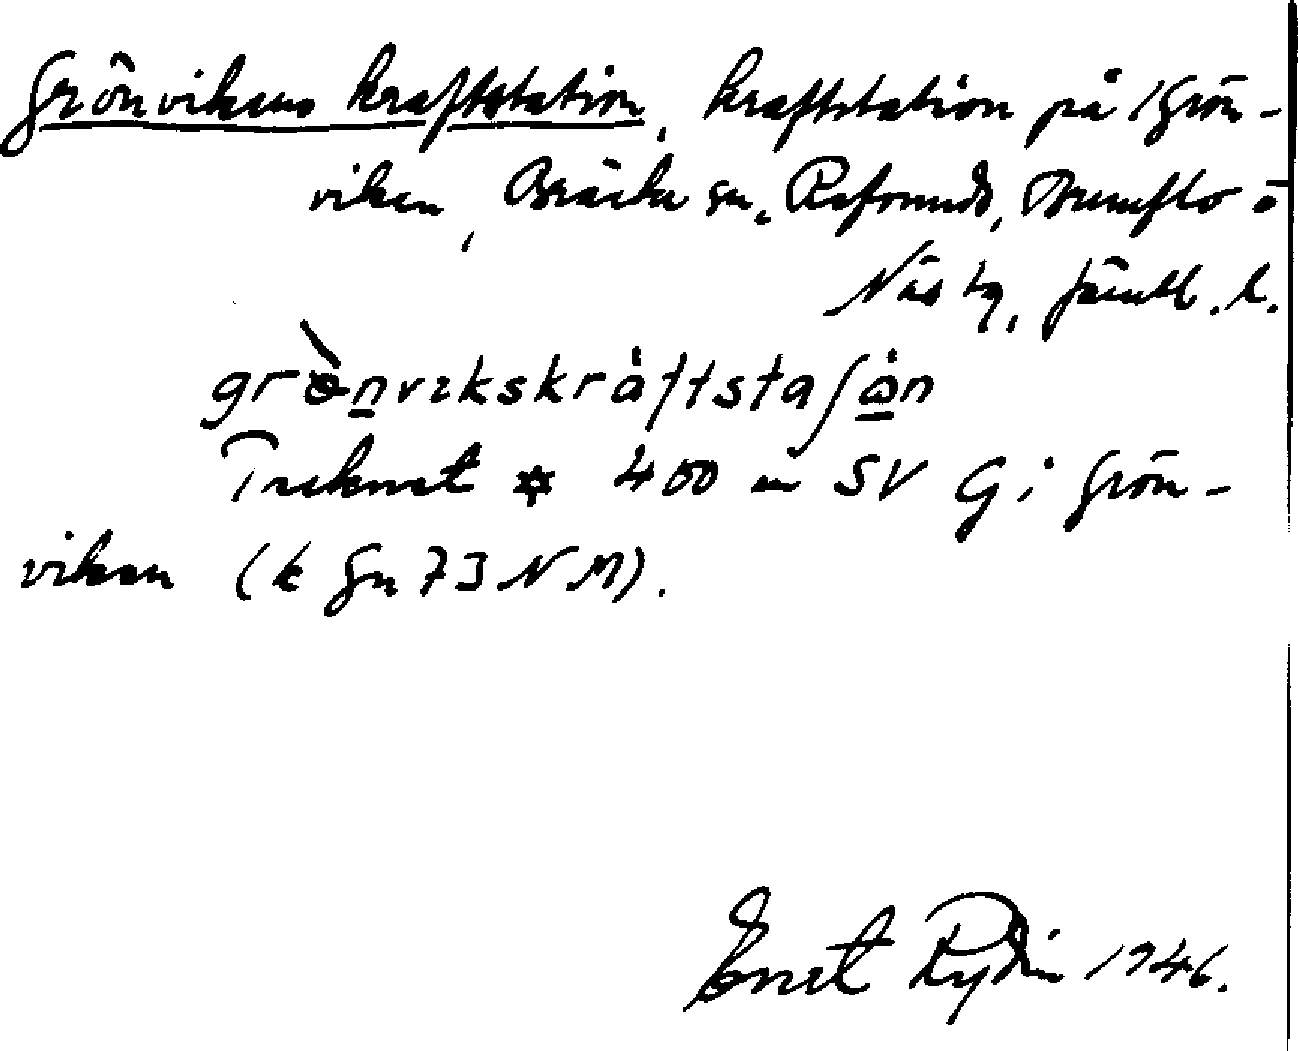 Grönvikens kraftstation, kraftstation på /Grön-
viken, Bräcke sn, Refsunds, Brunflo o
Näs tg, Jämtl. l.
grɵ̀nvıkskrȧftstaʃɷ̇n
Tecknet ✡ 400 m SV G i Grön-
viken (k Gn 73 NM).
Ernst Rydin 1946.